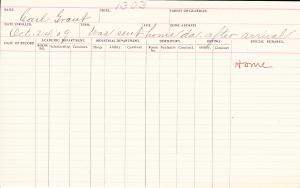 1303
NAME. TRIBE. PARENT OR GUARDIAN.
Carl Grant
DATE ENROLLED. TERM. HOME ADDRESS.
Oct. 24, 09 was sent home day after arrival
DATE OF RECORD. ACADEMIC DEPARTMENT. INDUSTRIAL DEPARTMENT. DORMITORY. OUTING. SPECIAL REMARKS.
ROOM NO. Scholarship. Conduct. Shop. Ability. Conduct. Room No. Neatness. Conduct. Ability. Conduct.
Home